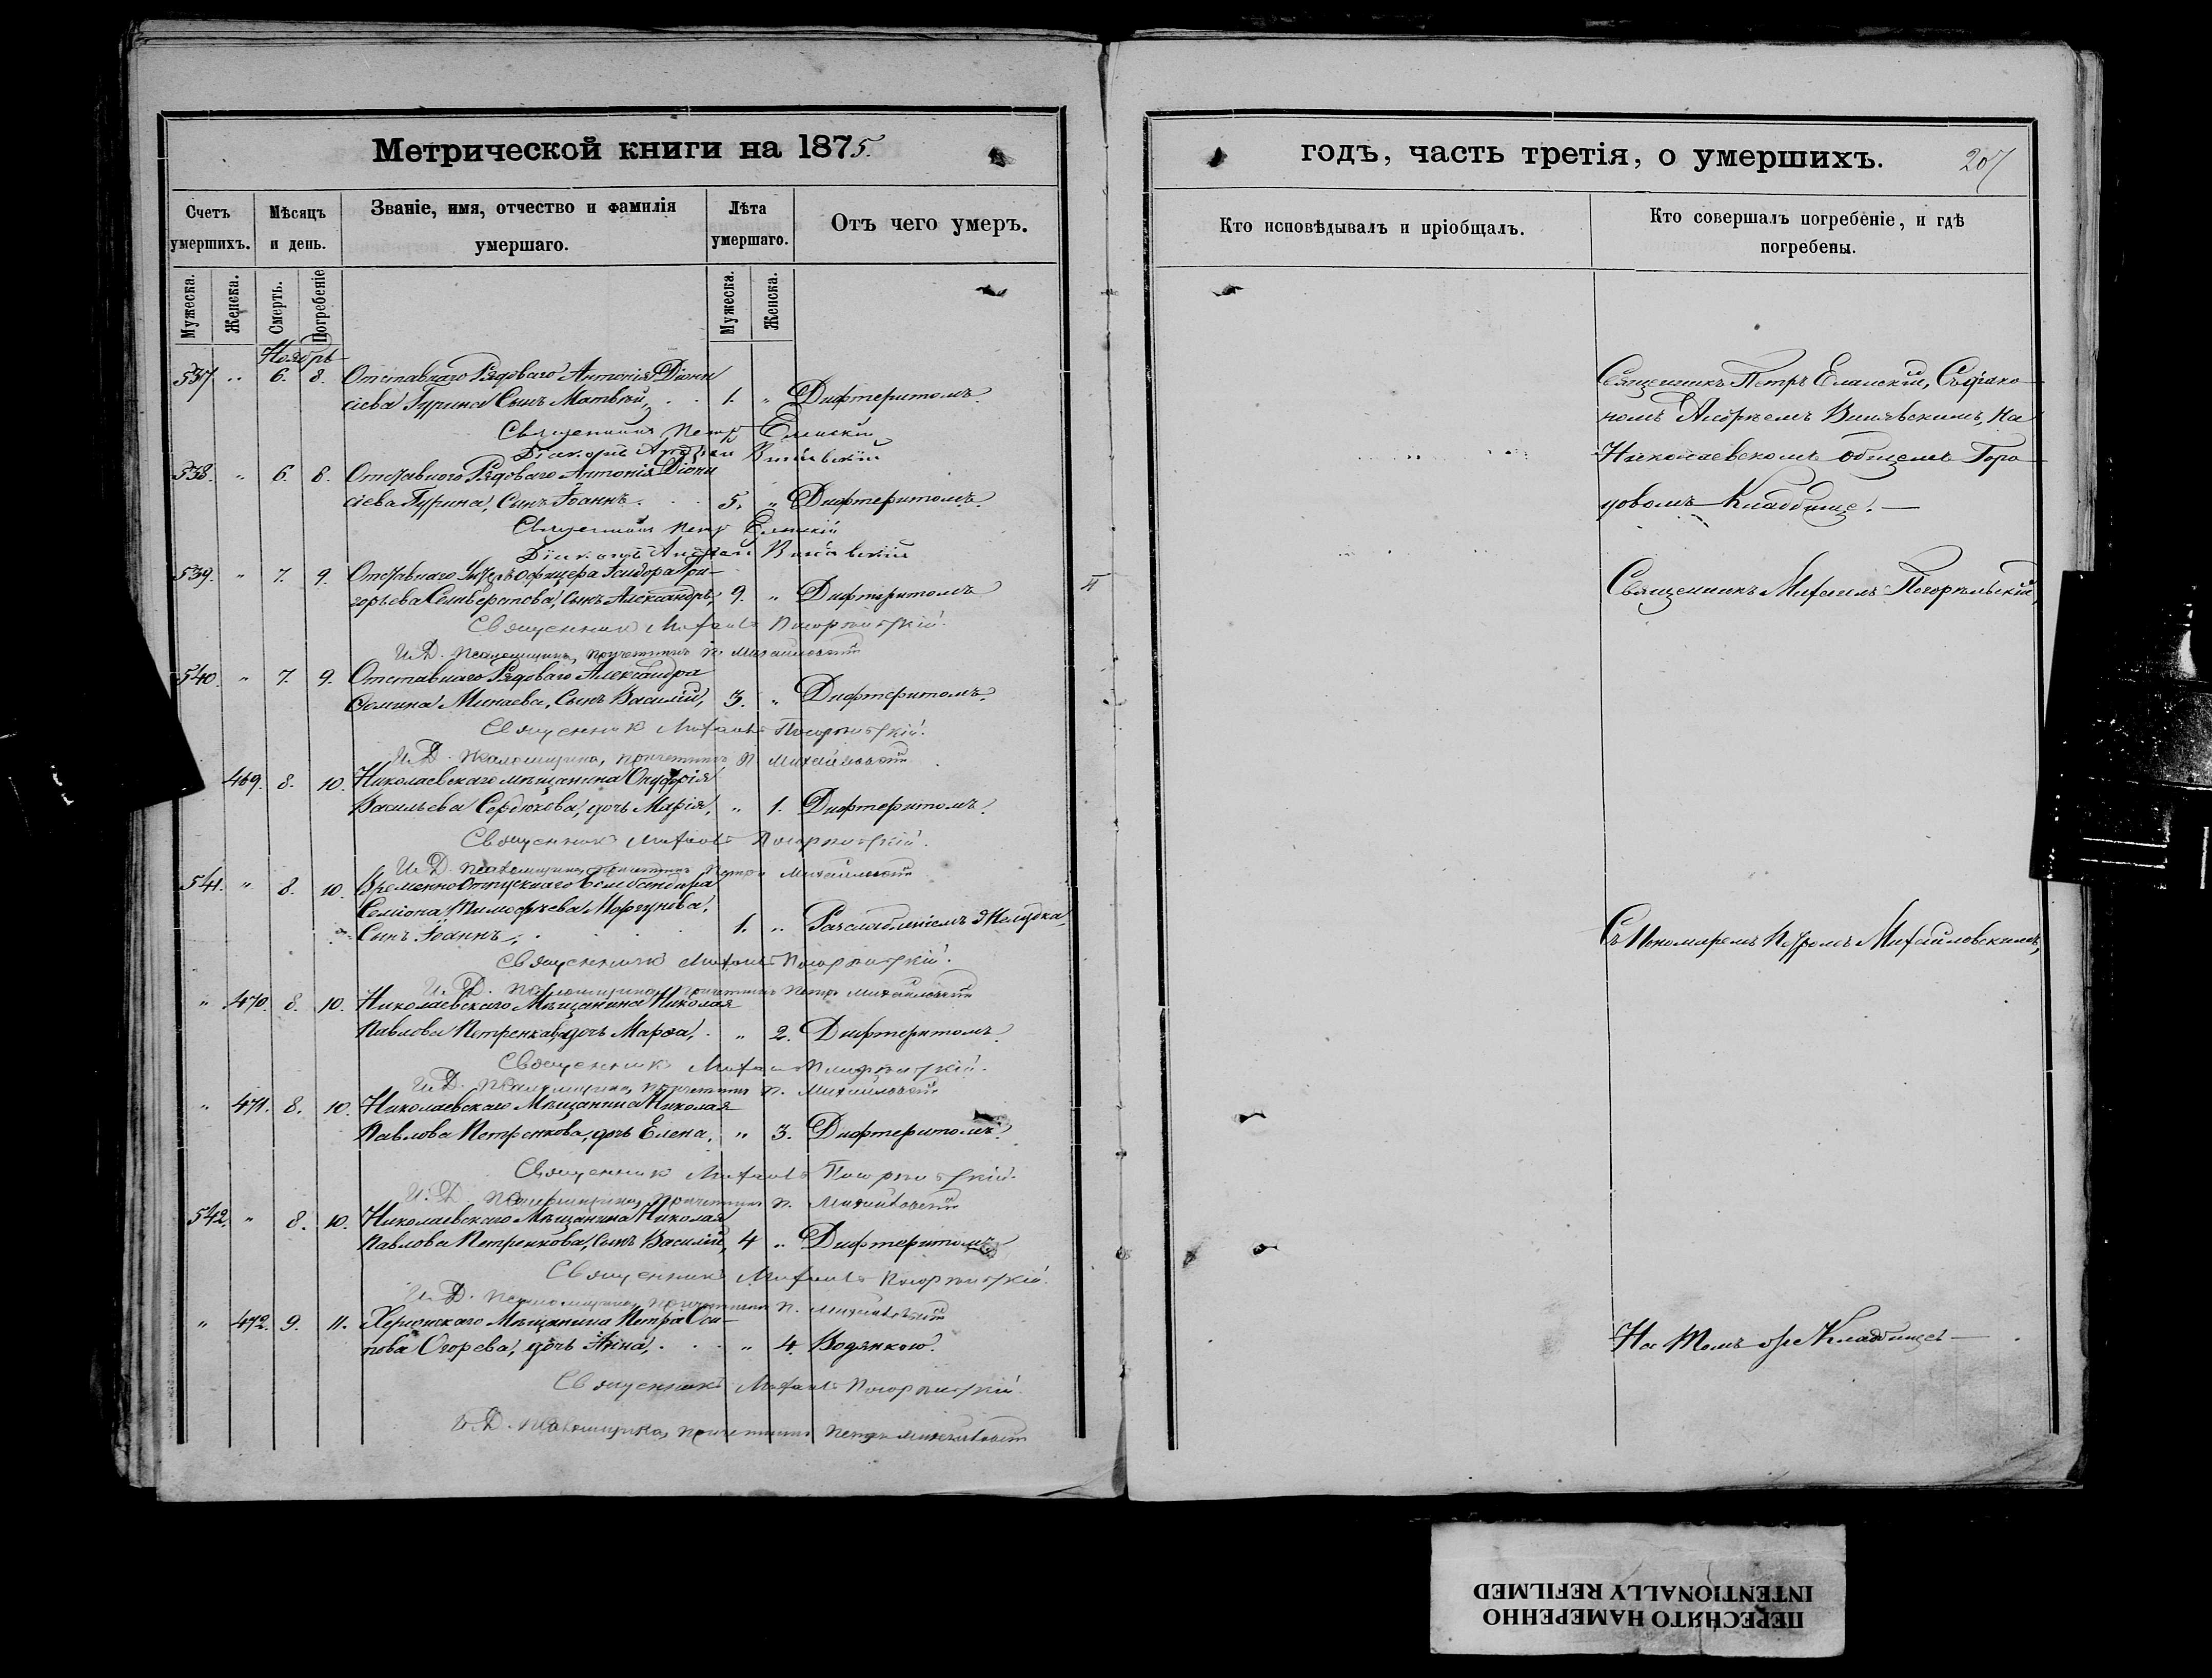 Метрической книги на 1875.
Счетъ умершихъ.
Мѣсяцъ и день.
Званіе, имя, отчество и фамилія умершаго.
Лѣта умершаго.
Отъ чего умеръ.
Мужеска.
Женска.
Смерть.
Погребеніе
Мужеска.
Женска.
Ноябрь
537 " 6. 8. Отставнаго Рядоваго Антонія Діони
сіева Гурина Сынъ Матвѣй, 1. " Дифтеритомъ.
Священникъ Петръ Еланскій
Діаконъ Андрей
538. " 6. 8. Отставного Рядоваго Антонія Діони
сіева Гурина, Сынъ Іоаннъ. 5. " Дифтеритомъ.
Священникъ Петръ Еланскій
Діаконъ Андрей
539. " 7. 9. Отставнаго Унтеръ Офицера Исидора Гри-
горьева Селиверстова, Сынъ Александръ, 9. " Дифтеритомъ
Священникъ Михаилъ Погорѣльскій.
И. Д. Псаломщика, причетникъ П. Михайловскій
540. " 7. 9. Отставнаго Рядоваго Александра
Фомина Минаева, Сынъ Василій, 3. " Дифтеритомъ.
Священник Михаилъ Погорѣльскій.
И. Д. Псаломщика, причетникъ П. Михайловскій
469. 8. 10. Николаевскаго мѣщанина Онуфрія
Васильева Сердюкова, дочь Марія, " 1. Дифтеритомъ.
Священникъ Михаилъ Погорѣльскій.
И. Д. Псаломщика, причетникъ Петръ Михайловскій
541. " 8. 10. Временно Отпускнаго
Семіона Тимофѣева Моргунова,
Сынъ Іоаннъ, 1. " Разслабленіемъ Желудка
Священникъ Михаилъ Погорѣльскій.
И. Д. Псаломщика, причетникъ Петръ Михайловскій
" 470. 8. 10. Николаевскаго Мѣщанина Николая
Павлова Петренкова, дочь Марѳа, " 2. Дифтеритомъ.
Священникъ Михаилъ Погорѣльскій.
И. Д. Псаломщика, причетникъ П. Михайловскій
" 471. 8. 10. Николаевскаго Мѣщанина Николая
Павлова Петренкова, дочь Елена, " 3. Дифтеритомъ.
Священникъ Михаилъ Погорѣльскій.
И. Д. Псаломщика, причетникъ П. Михайловскій
542. " 8. 10. Николаевскаго Мѣщанина Николая
Павлова Петренкова, Сынъ Василій, 4 " Дифтеритомъ
Священникъ Михаилъ Погорѣльскій.
И. Д. Псаломщика, причетникъ П. Михайловскій
" 472. 9. 11. Херсонскаго Мѣщанина Петра Оси-
пова Огорева, дочь Анна, " 4. Водянкою.
Священникъ Михаилъ Погорѣльскій
И. Д. Псаломщика, причетникъ Петръ Михайловскій
годъ, часть третія, о умершихъ.
207
Кто исповѣдывалъ и пріобщалъ.
Кто совершалъ погребеніе, и гдѣ погребены.
Священникъ Петръ Еланскій, Съ діако
номъ Андреемъ на
Николаевскомъ общемъ Горо
довомъ Кладбище. —
Священникъ Михаилъ Погорѣльскій,
Съ Пономаремъ Петромъ Михайловскимъ,
На Томъ же Кладбище —
ПЕРЕСНЯТО НАМЕРЕННО
INTENTIONALLY REFILMED